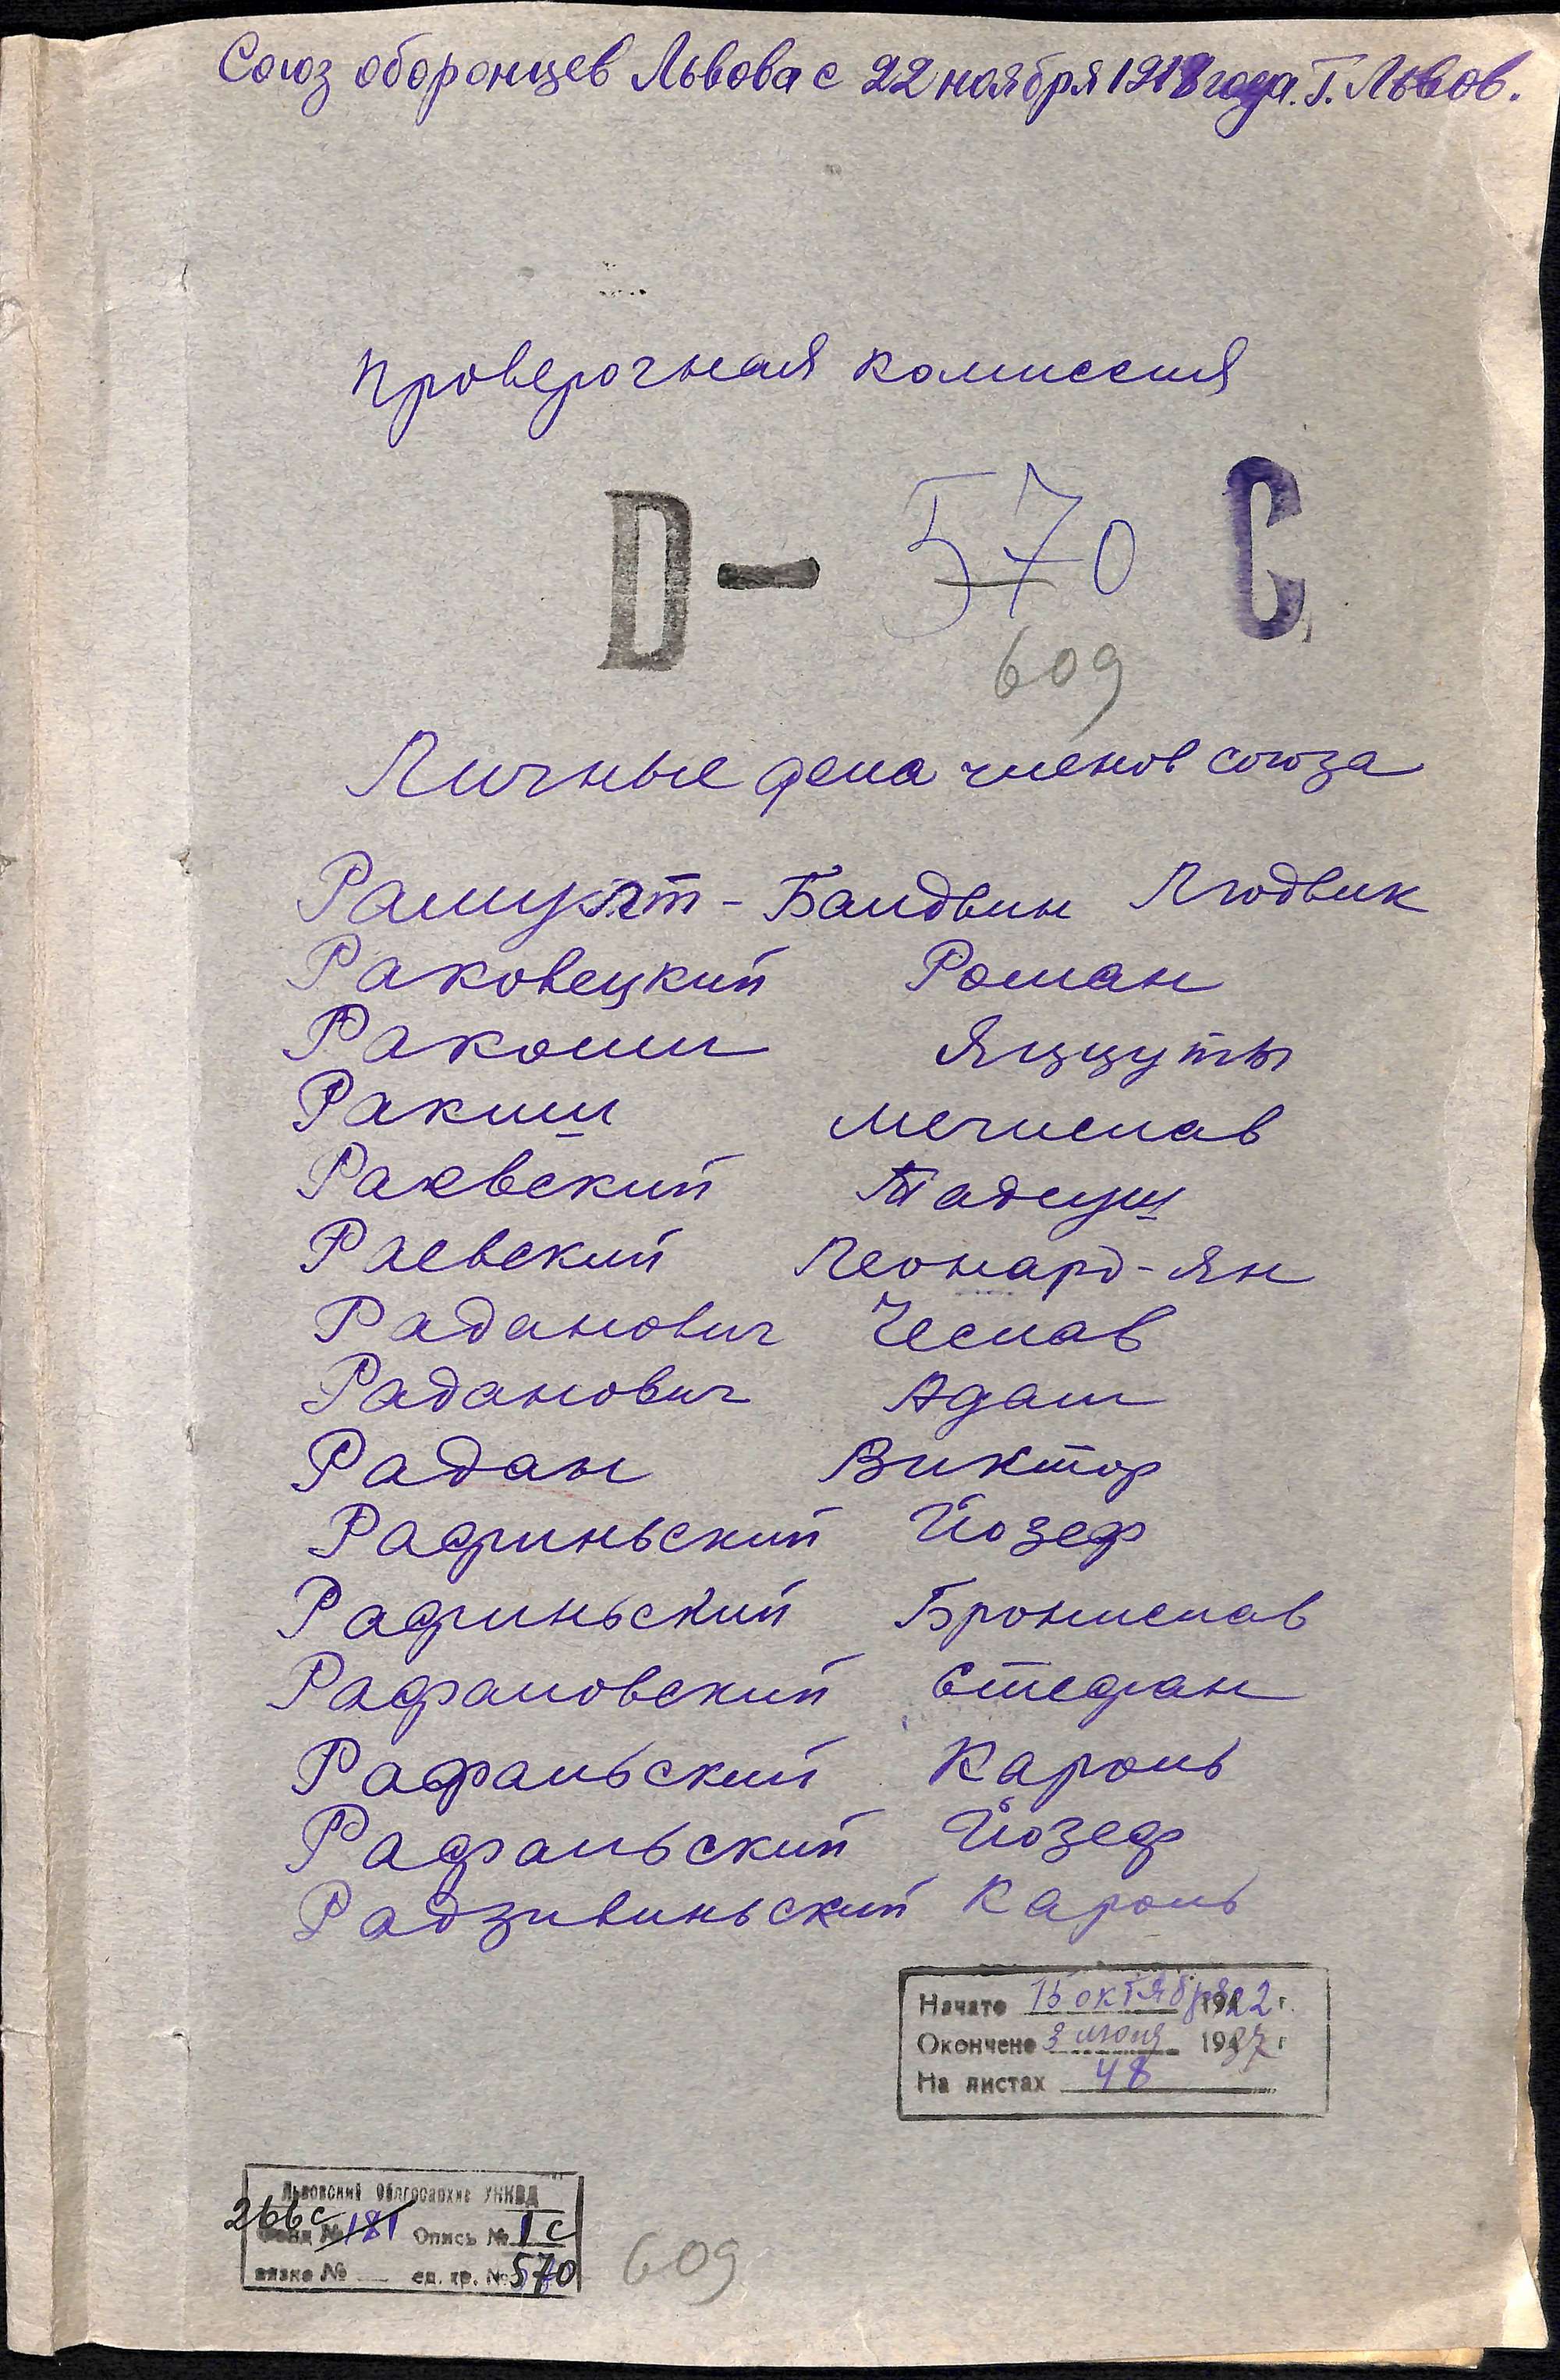 Союз оборонцев Львова с 22 ноября 1918 года. Г. Львов.
Проверочная комиссия
D — 570 С
609
Личные дела членов союза
Рамульт - Балдвин Людвик
Раковецкий Роман
Ракоши Яцуты
Ракиш Мечислав
Раквский Тадеуш
Раевский Леонард-Ян
Раданович Чеслав
Раданович Адам
Радан Виктор
Рафиньский Йозеф
Рафиньский Бронислав
Рафаловский Стефан
Рафальский Кароль
Рафальский Йозеф
Радзивиньский Кароль
Начато 15 октября 1922 г.
Окончено 3 июня 1937 г
На листах 48
Львовский Облгосархив УНКВД
266с
Фонд № 181 Опись № 1с
вязка № — ед. хр. № 570
609